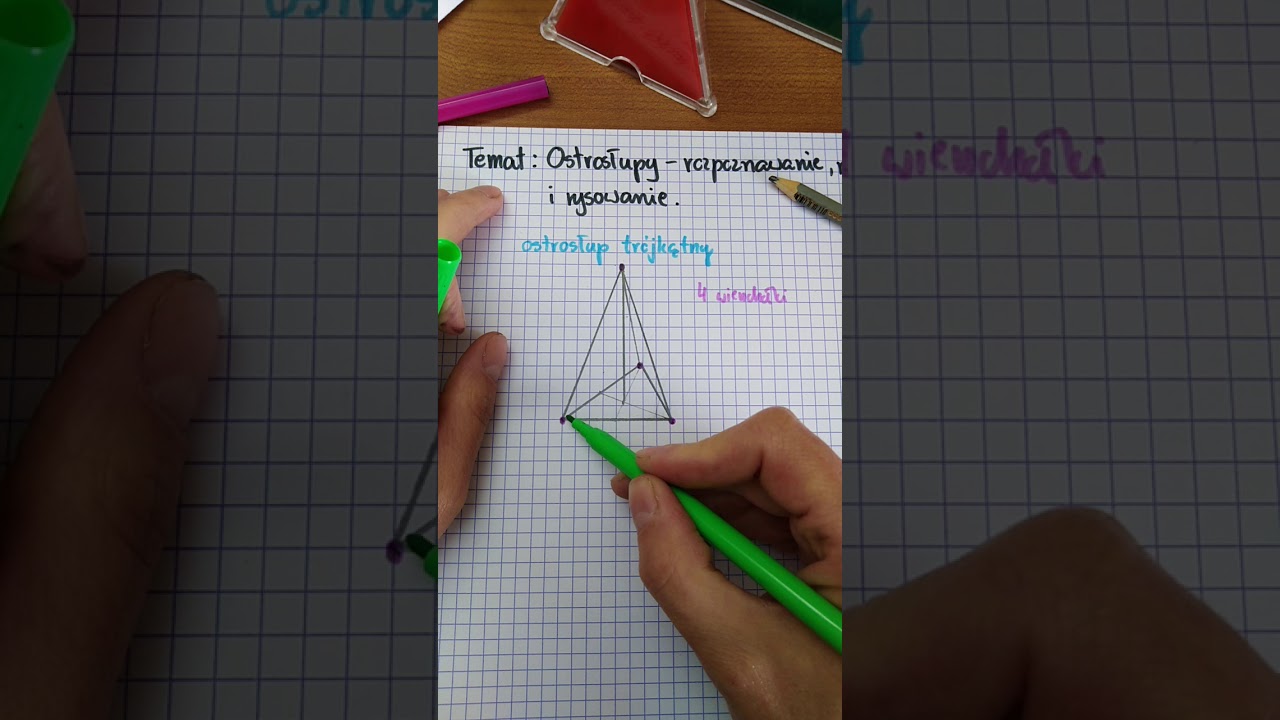 Temat: Ostrosłupy - rozpoznawanie,
i rysowanie.
ostrosłup trójkątny
4 wierzchołki